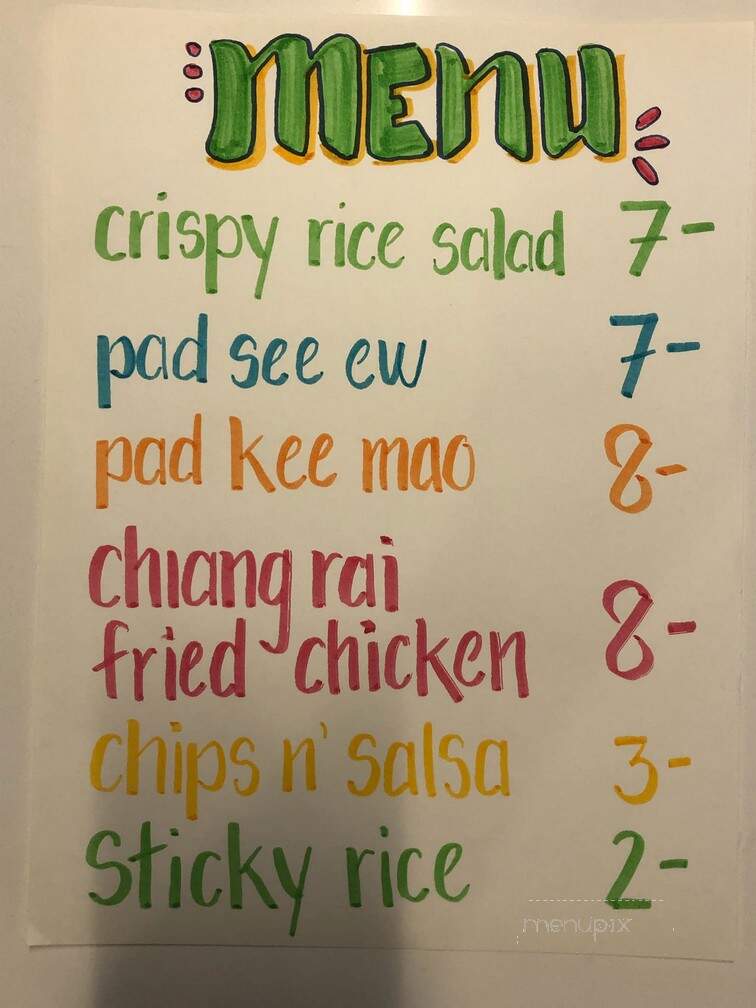 menu
crispy rice salad 7-
pad see ew 7-
pad kee mao 8-
chiang rai
fried chicken 8-
chips n' salsa 3-
Sticky rice 2-
menupix